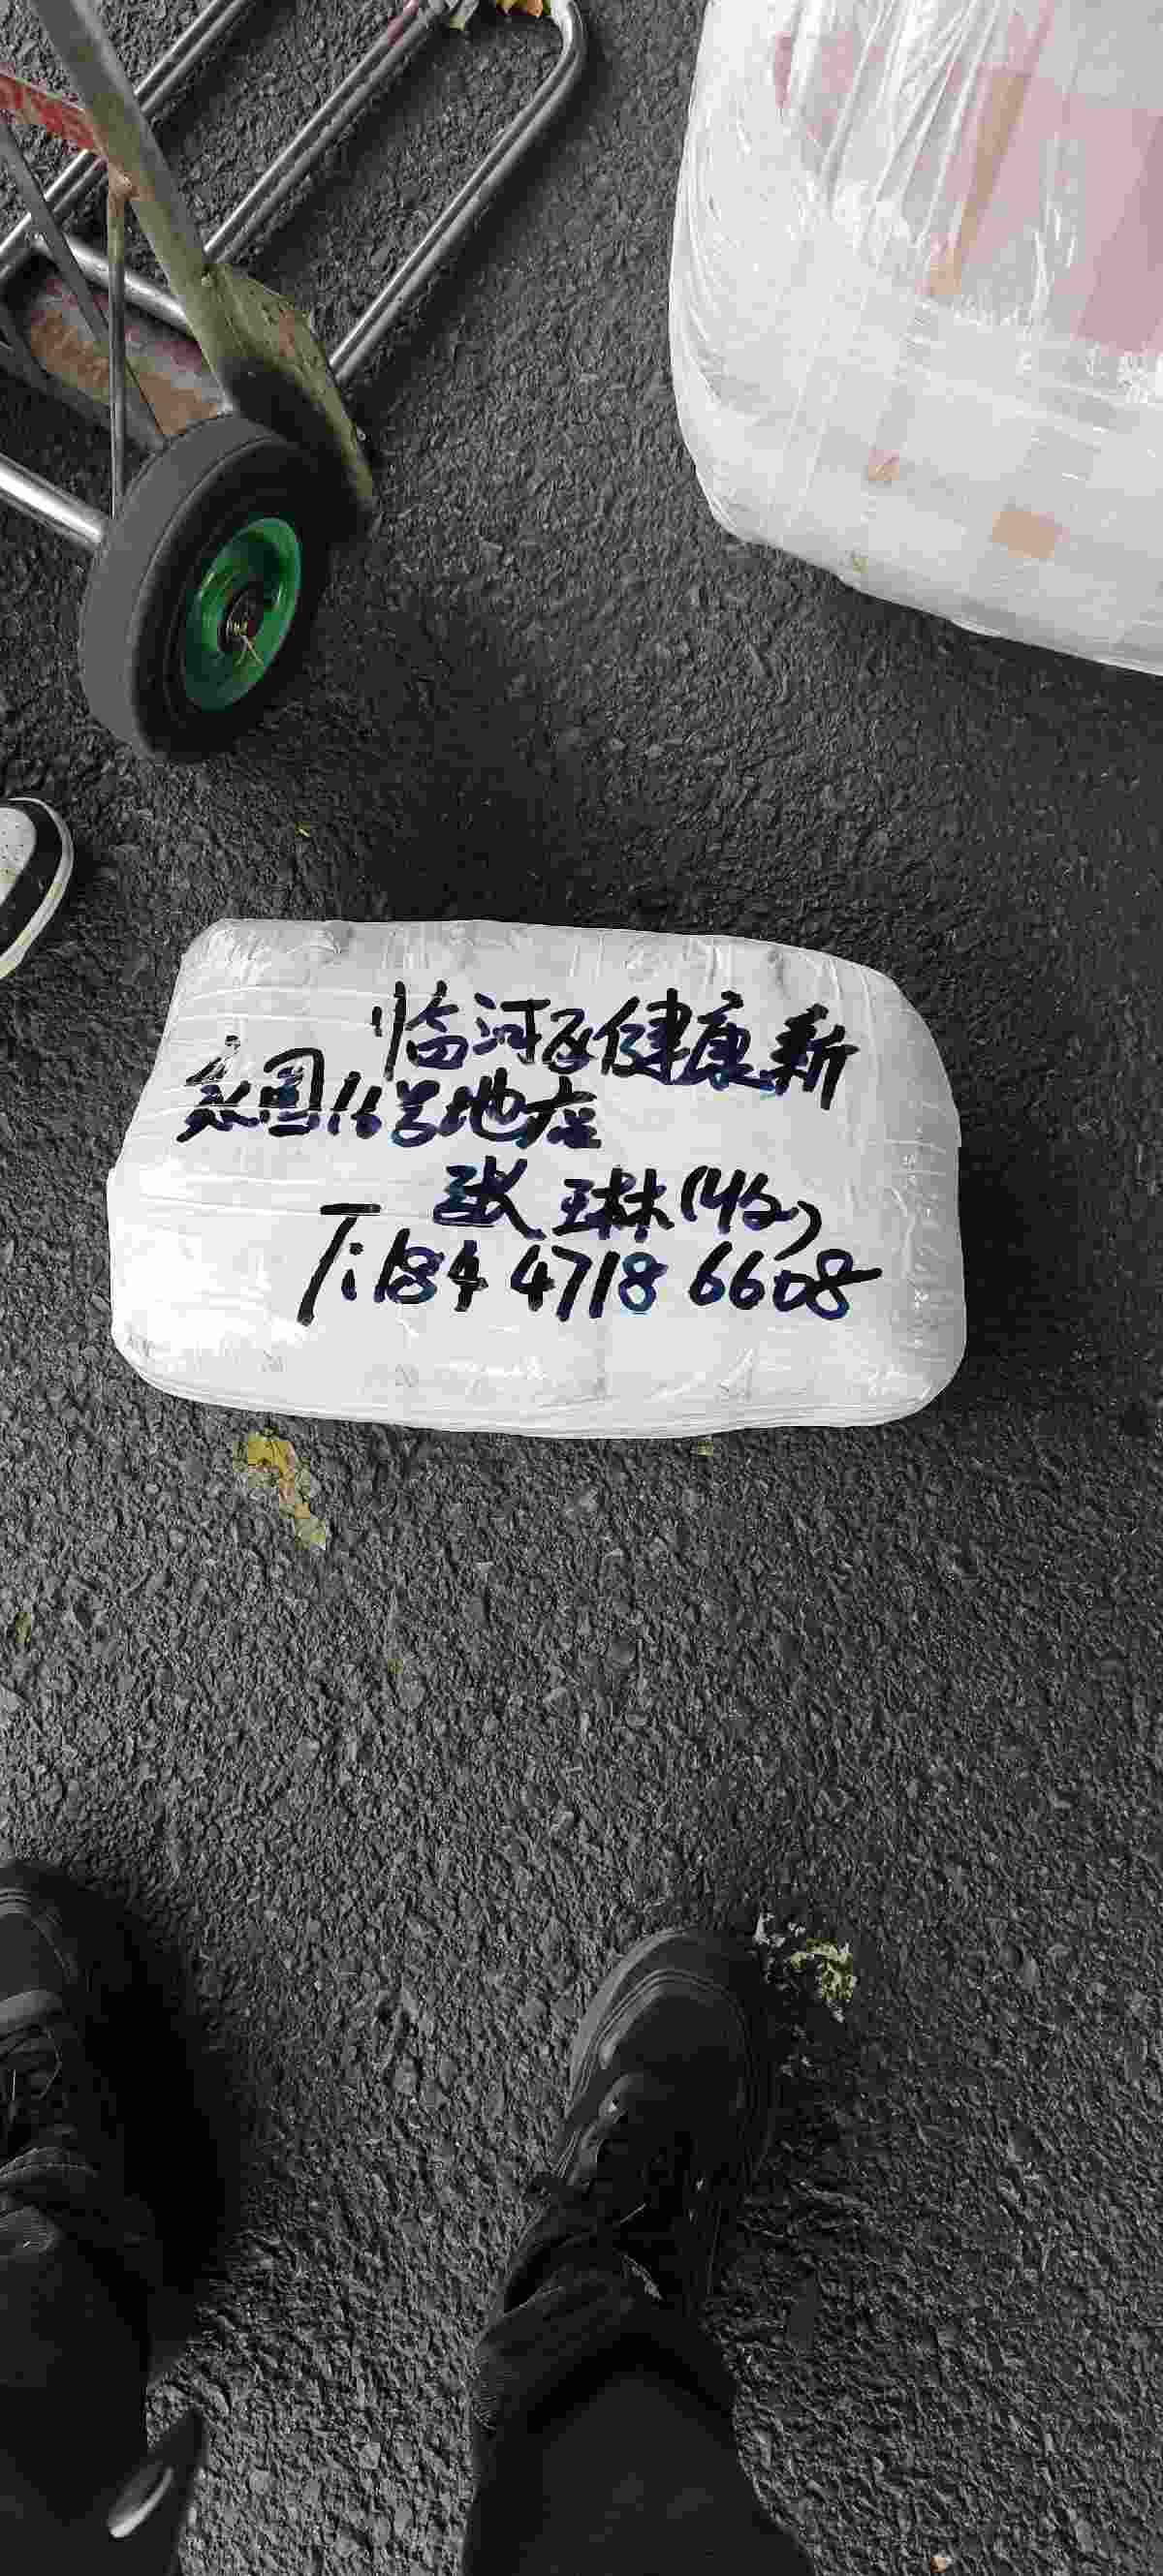 临河区健康新
家园16号地店
张琳(收)
T:184 4718 6608